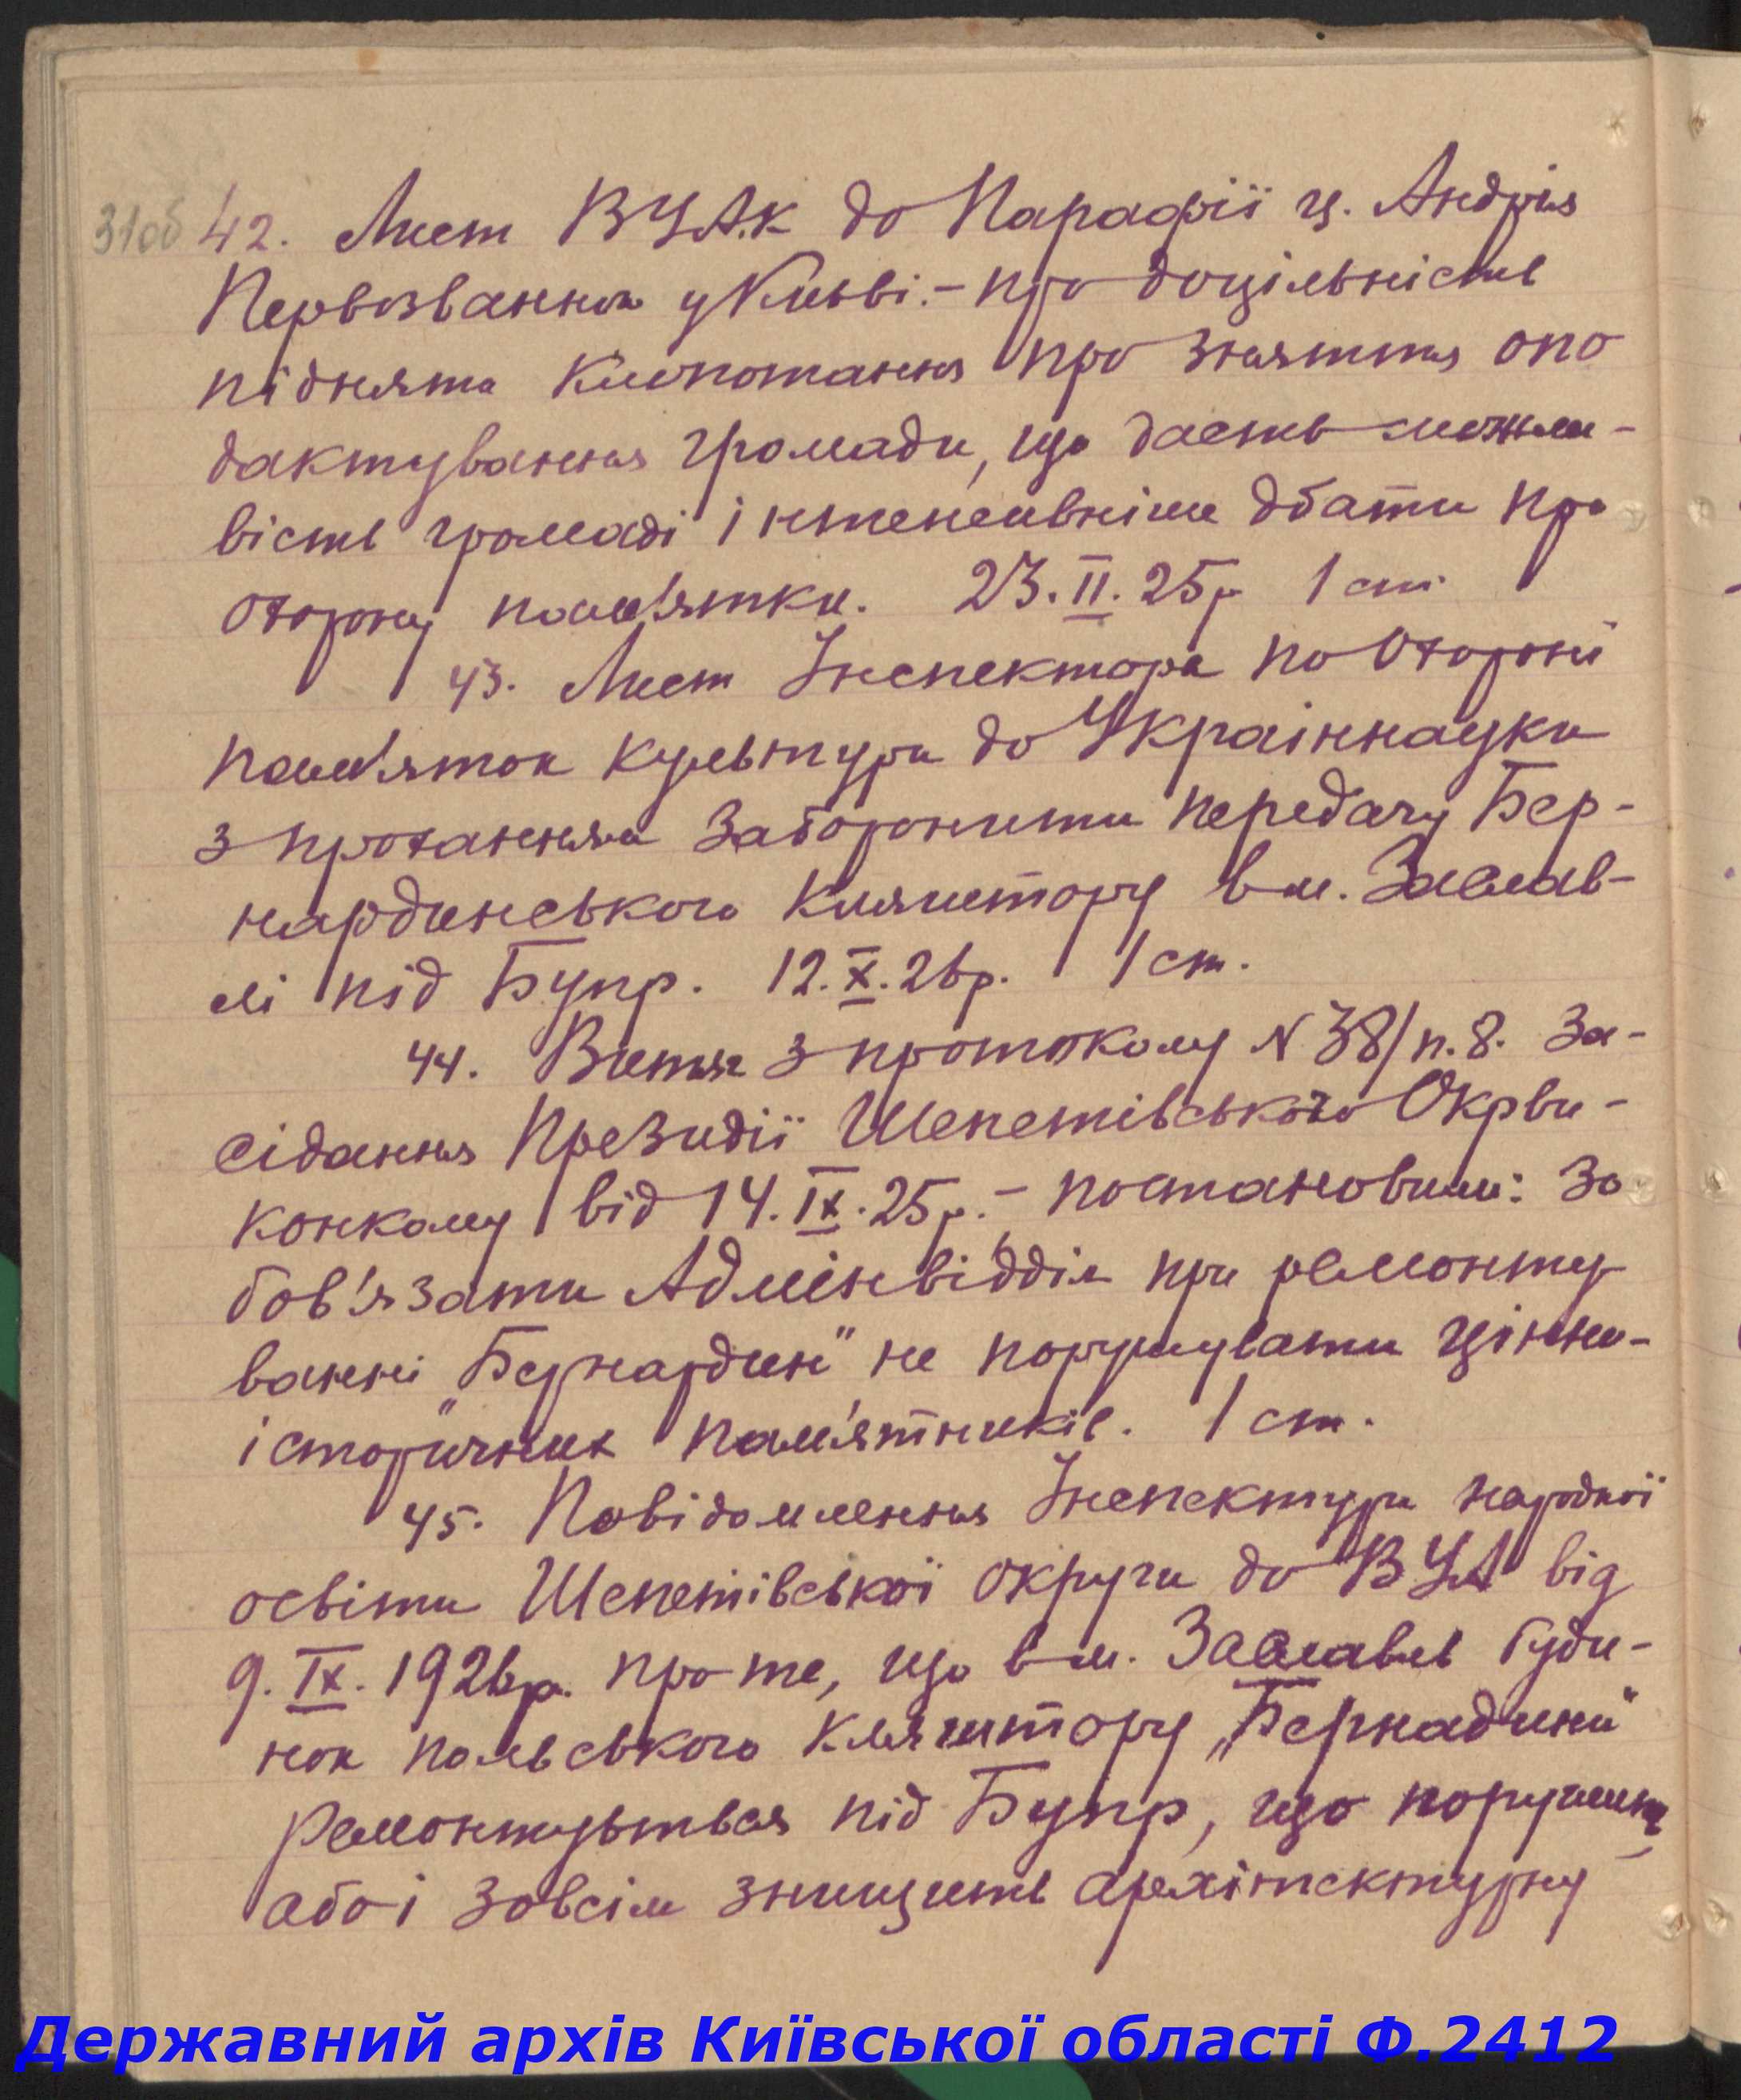 31об
42. Лист ВУАК до Парафії ц. Андрія
Первозванного у Київі. – про доцільність
підняти клопотання про зняття опо
даткування громади, що дасть можли-
вість громаді інтенсивніше дбати про
охорону пам'ятки. 23.II.25р 1 ст.
43. Лист Інспектора по Охороні
пам'яток культури до Українауки
з проханням заборонити передачу Бер-
нардинського кляштору в м. Заслав-
лі під Бупр. 12.X.26р. 1 ст.
44. Витяг з протоколу N 38/п.8. За-
сідання Президії Шепетівського Окрви-
конкому від 14.IX.25р. – постановили: Зо
бов'язати Адмінвідділ при ремонту
ванні „Бернардин" не порушувати цінни-
історичних пам'ятників. 1 ст.
45. Повідомлення Інспектури народної
освіти Шепетівської округи до ВУА від
9.IX.1926р. про те, що в м. Заславль буди-
нок польського кляштору „Бернадини"
ремонтується під Бупр, що порушить
або і зовсім знищить архітектурну
Державний архів Київської області Ф.2412